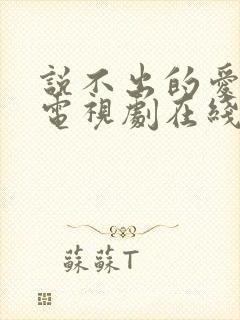 說不出的愛
電視劇在綫
蘇蘇T